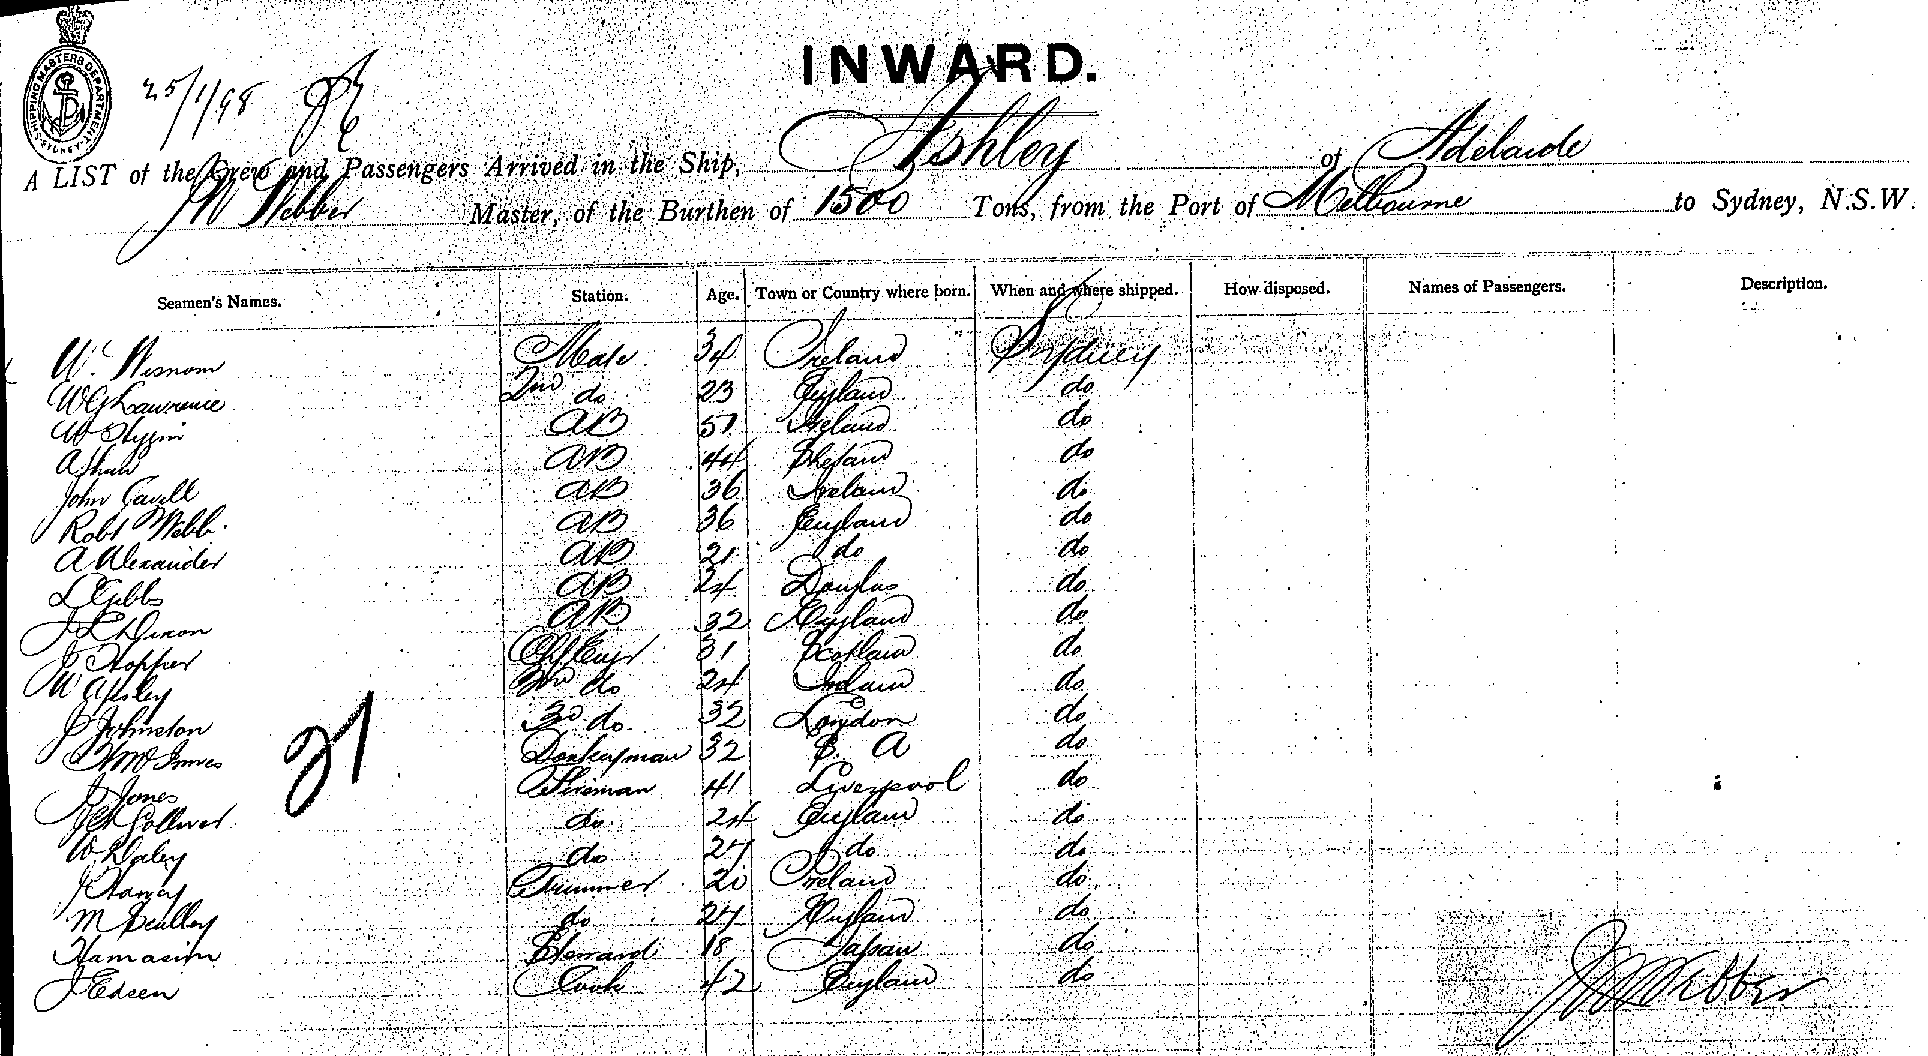 SHIPPING MASTERS DEPARTMENT
SYDNEY
25/1/98
INWARD.
A LIST of the Crew and Passengers Arrived in the Ship, Ashley of Adelaide
J W Webber Master, of the Burthen of 1500 Tons, from the Port of Melbourne to Sydney, N.S.W.
Seamen's Names. Station. Age. Town or Country where born. When and where shipped. How disposed. Names of Passengers. Description.
Wm Wisnom Mate 34 Ireland Sydney
W G Lawrence 2nd do 23 England do
W AB 51 Ireland do
A Shaw AB 44 do
John Cavill AB 36 Ireland do
Robt Webb AB 36 England do
A Alexander AB 21 do do
L Gibbs AB 24 Douglas do
J L Dixon AB 32 England do
J Hopper Ch Engr 31 Scotland do
W 2nd do 24 Ireland do
J Johnston 3rd do 32 London do
McInnes Donkeyman 32 A do
J Jones Fireman 41 Liverpool do
Golliver do 24 England do
W Daley do 27 do do
J Trimmer 20 Ireland do
M Sculley do 27 England do
Hamasim Steward 18 Japan do
J Edeen Cook 42 England do
21
J W Webber